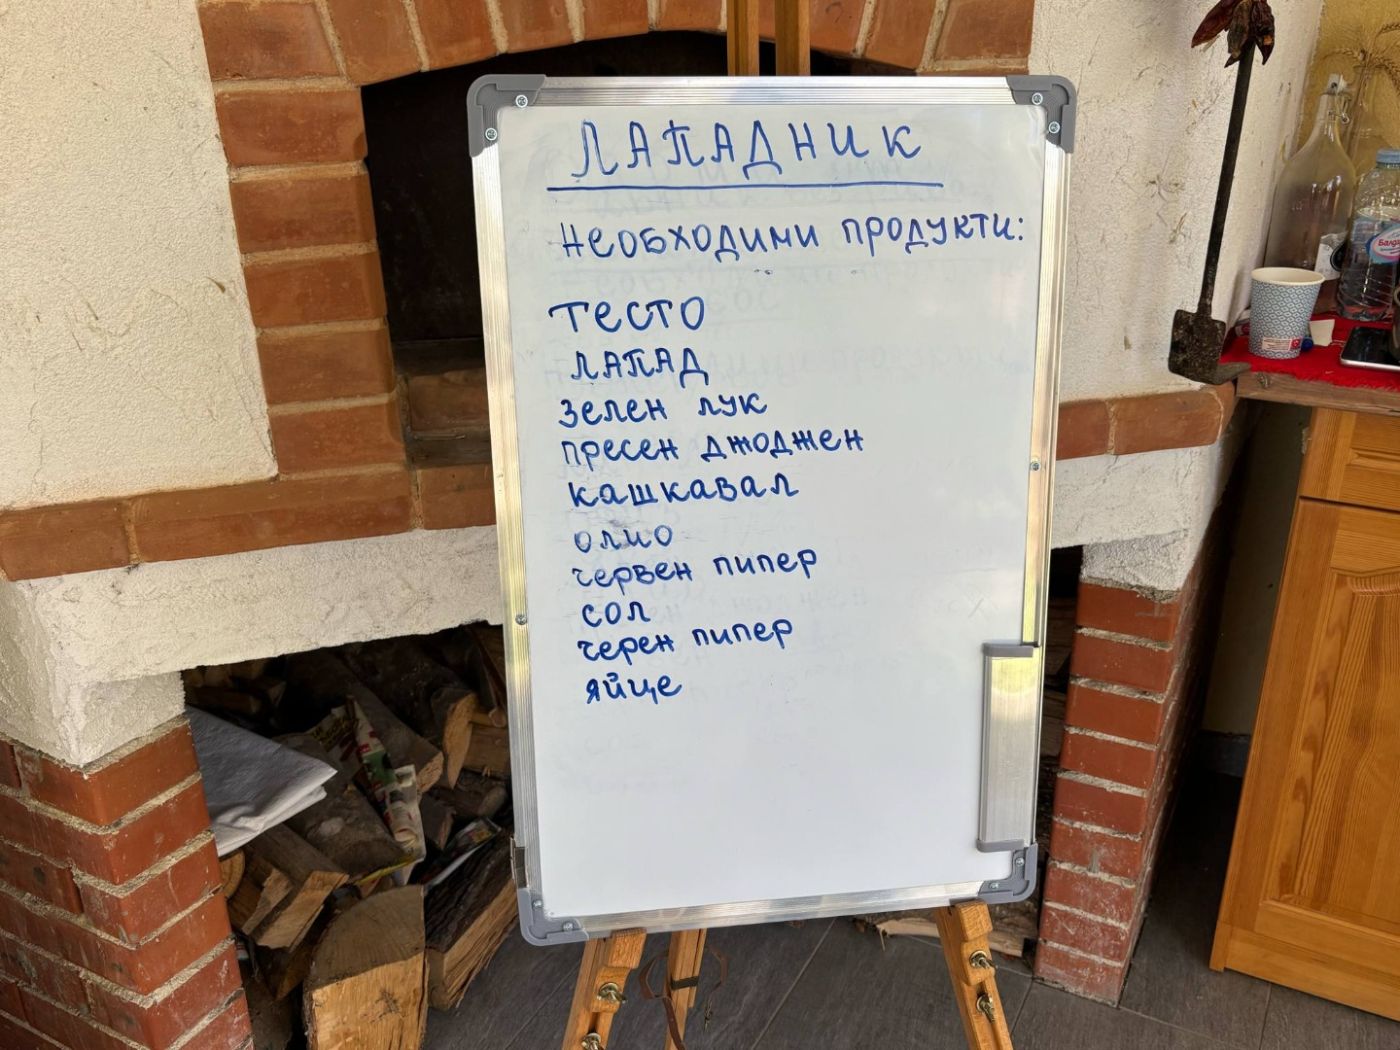 ЛАПАДНИК
Необходими продукти:
тесто
лапад
зелен лук
пресен джоджен
кашкавал
олио
червен пипер
сол
черен пипер
яйце